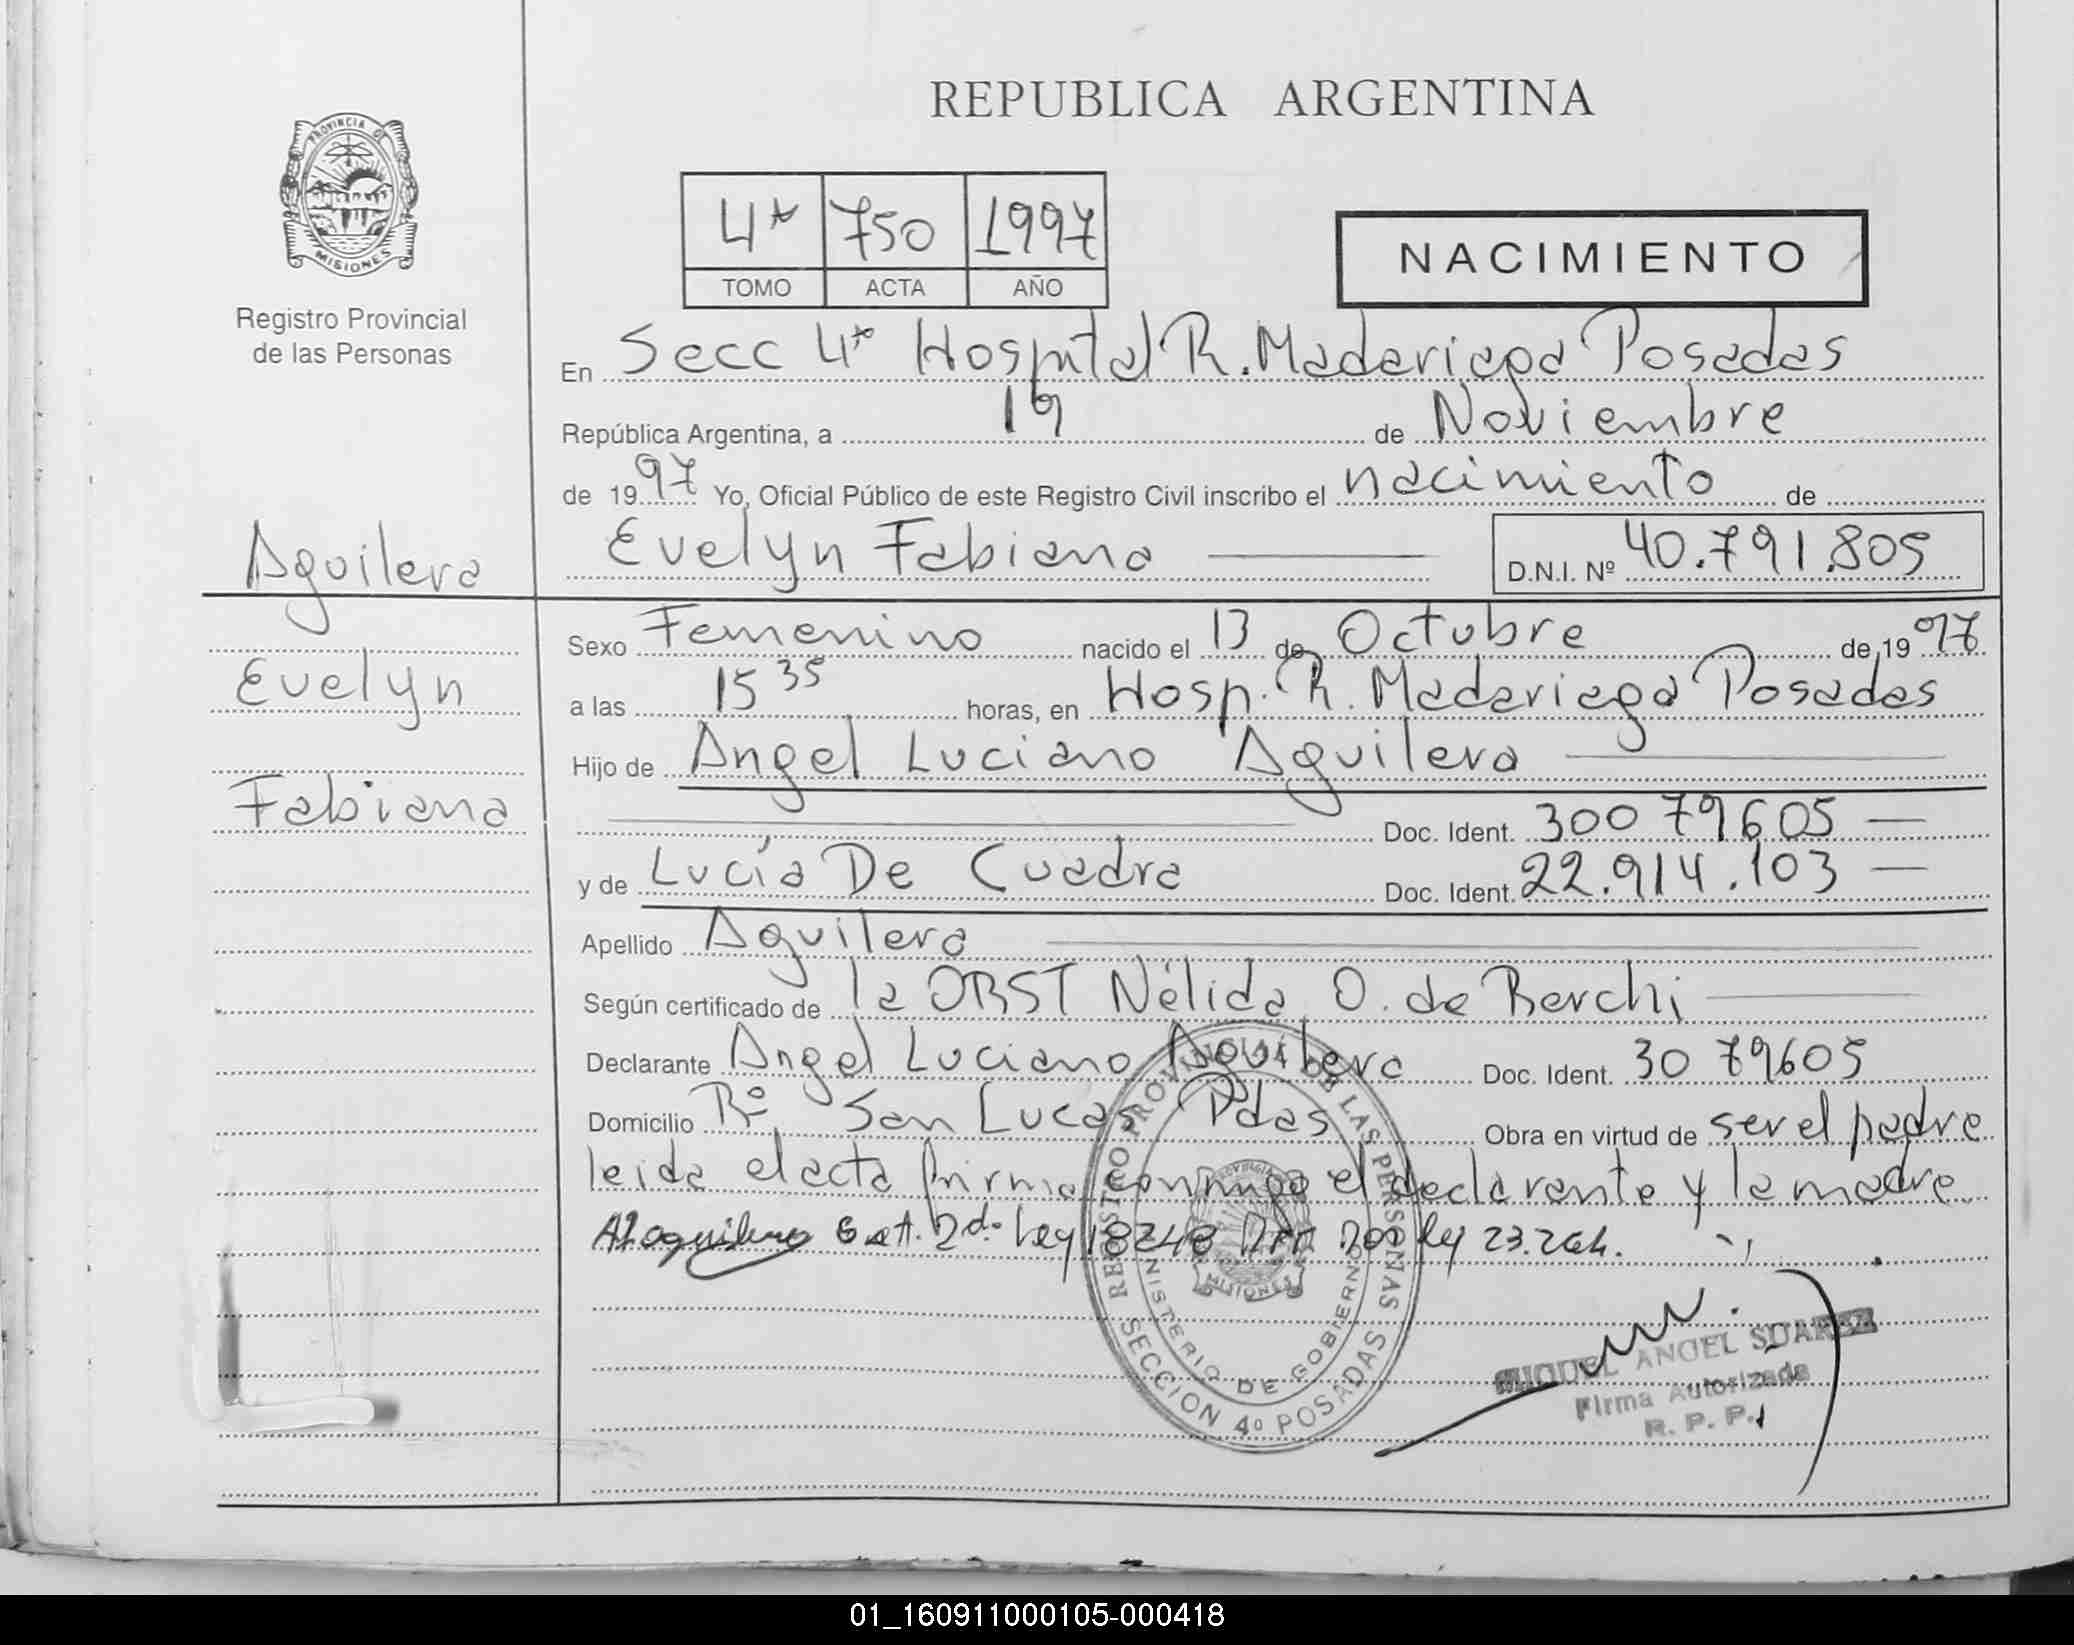 REPUBLICA ARGENTINA
PROVINCIA DE
MISIONES
Registro Provincial
de las Personas
4ta 750 1997
TOMO ACTA AÑO
NACIMIENTO
En Secc 4ta Hospital R. Madariaga Posadas
República Argentina, a 19 de Noviembre
de 1997 Yo, Oficial Público de este Registro Civil inscribo el nacimiento de
Evelyn Fabiana D.N.I. Nº 40.791.805
Aguilera
Evelyn
Fabiana
Sexo Femenino nacido el 13 de Octubre de 1997
a las 15 35 horas, en Hosp. R. Madariaga Posadas
Hijo de Angel Luciano Aguilera
Doc. Ident. 300 79605
y de Lucía De Cuadra Doc. Ident. 22.914.103
Apellido Aguilera
Según certificado de la OBST Nélida O. de Berchi
Declarante Angel Luciano Aguilera Doc. Ident. 30 79605
Domicilio Bº San Lucas Pdas Obra en virtud de ser el padre
leida el acta firma conmigo el declarante y la madre
Art. 2do. Ley 18248 ley 23.264.
REGISTRO PROVINCIAL DE LAS PERSONAS
MINISTERIO DE GOBIERNO
MISIONES
SECCION 4º POSADAS
MIGUEL ANGEL SUAREZ
Firma Autorizada
R. P. P.
01_160911000105-000418